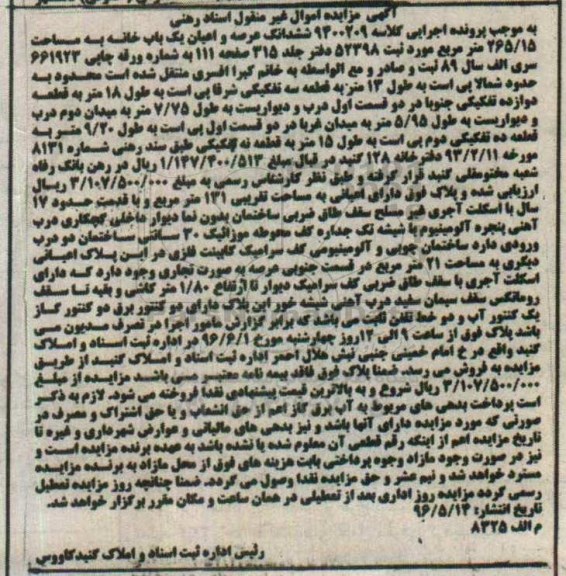 آگهی مزایده اموال غیر منقول اسناد رهنی
به موجب پرونده اجرایی کلاسه ۹۳۰۰۲۰۹ ششدانگ عرصه و اعیان یک باب خانه به مساحت
۲۶۵/۱۵ متر مربع مورد ثبت ۵۲۳۹۸ دفتر جلد ۳۱۵ صفحه ۱۱۱ به شماره ورقه چاپی ۶۶۱۹۲۳
سری الف سال ۸۹ ثبت و صادر و مع الواسطه به خانم کبرا افسری منتقل شده است محدود به
حدود شمالا پی است به طول ۱۳ متر به قطعه سه تفکیکی شرقا پی است به طول ۱۸ متر به قطعه
دوازده تفکیکی جنوبا در دو قسمت اول درب و دیواریست به طول ۷/۷۵ متر به میدان دوم درب
و دیواریست به طول ۵/۹۵ متر به میدان غربا در دو قسمت اول پی است به طول ۹/۲۰ متر به
قطعه ده تفکیکی دوم پی است به طول ۱۵ متر به قطعه نه تفکیکی طبق سند رهنی شماره ۸۱۳۱
مورخه ۹۳/۲/۱۱ دفترخانه ۱۲۸ گنبد در قبال مبلغ ۱/۱۳۷/۴۰۰/۵۱۳ ریال در رهن بانک رفاه
شعبه مختومقلی گنبد قرار گرفته و طبق نظر کارشناس رسمی به مبلغ ۳/۱۰۷/۵۰۰/۰۰۰ ریال
ارزیابی شده و پلاک فوق دارای اعیانی به مساحت تقریبی ۱۳۱ متر مربع و با قدمت حدود ۱۷
سال با اسکلت آجری غیر مسلح سقف طاق ضربی ساختمان بدون نما دیوار داخلی گچکاری درب
آهنی پنجره آلومینیوم با شیشه تک جداره کف محوطه موزائیک ۳۰ سانتی ساختمان دو درب
ورودی دارد ساختمان چوبی و آلومینیومی کف سرامیک کابینت فلزی در این پلاک اعیانی
دیگری به مساحت ۲۱ متر مربع در قسمت جنوبی عرصه به صورت تجاری وجود دارد که دارای
اسکلت آجری با سقف طاق ضربی کف سرامیک دیوار تا ارتفاع ۱/۸۰ متر کاشی و بقیه تا سقف
رومالکس سقف سیمان سفید درب آهنی شیشه خور این پلاک دارای دو کنتور برق دو کنتور گاز
یک کنتور آب و دو خط تلفن ثابت می باشد که برابر گزارش مامور اجرا در تصرف مدیون می
باشد پلاک فوق از ساعت ۹ الی ۱۲ روز چهارشنبه مورخ ۹۶/۶/۱ در اداره ثبت اسناد و املاک
گنبد واقع در خ امام خمینی جنبی نبش هلال احمر اداره ثبت اسناد و املاک گنبد از طریق
مزایده به فروش می رسد. ضمنا پلاک فوق فاقد بیمه نامه معتبر می باشد مزایده از مبلغ
۳/۱۰۷/۵۰۰/۰۰۰ ریال شروع و به بالاترین قیمت پیشنهادی نقدا فروخته می شود. لازم به ذکر
است پرداخت بدهی های مربوط به آب برق گاز اعم از حق انشعاب و یا حق اشتراک و مصرف در
صورتی که مورد مزایده دارای آنها باشد و نیز بدهی های مالیاتی و عوارض شهرداری و غیره تا
تاریخ مزایده اعم از اینکه رقم قطعی آن معلوم شده یا نشده باشد به عهده برنده مزایده است و
نیز در صورت وجود مازاد وجوه پرداختی بابت هزینه های فوق از محل مازاد به برنده مزایده
مسترد خواهد شد و نیم عشر و حق مزایده نقدا وصول می گردد. ضمنا چنانچه روز مزایده تعطیل
رسمی گردد مزایده روز اداری بعد از تعطیلی در همان ساعت و مکان مقرر برگزار خواهد شد.
تاریخ انتشار: ۹۶/۵/۱۴
م الف ۸۳۲۵
رئیس اداره ثبت اسناد و املاک گنبدکاووس